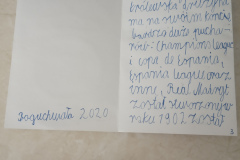 Boguchwała 2020
królewska drużyna
ma na swoim koncie
bardzo dużo pucha-
rów: Champions league
i copa de Espania,
Espania league oraz
inne, Real Madryt
został stworzony w
roku 1902 został
3